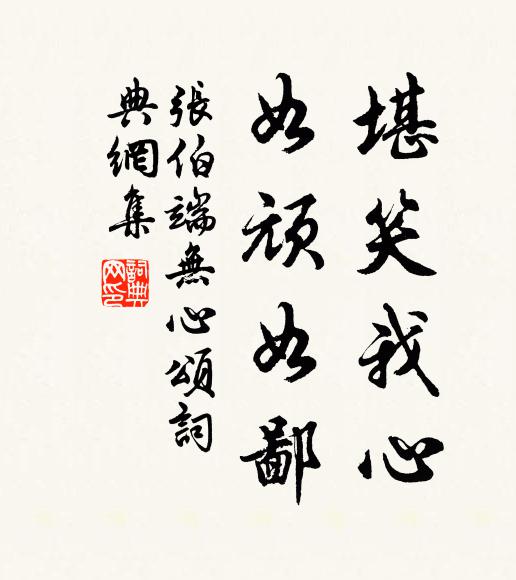 堪笑我心
如頑如鄙
張伯端無心頌詞
典網集
詞典
网印